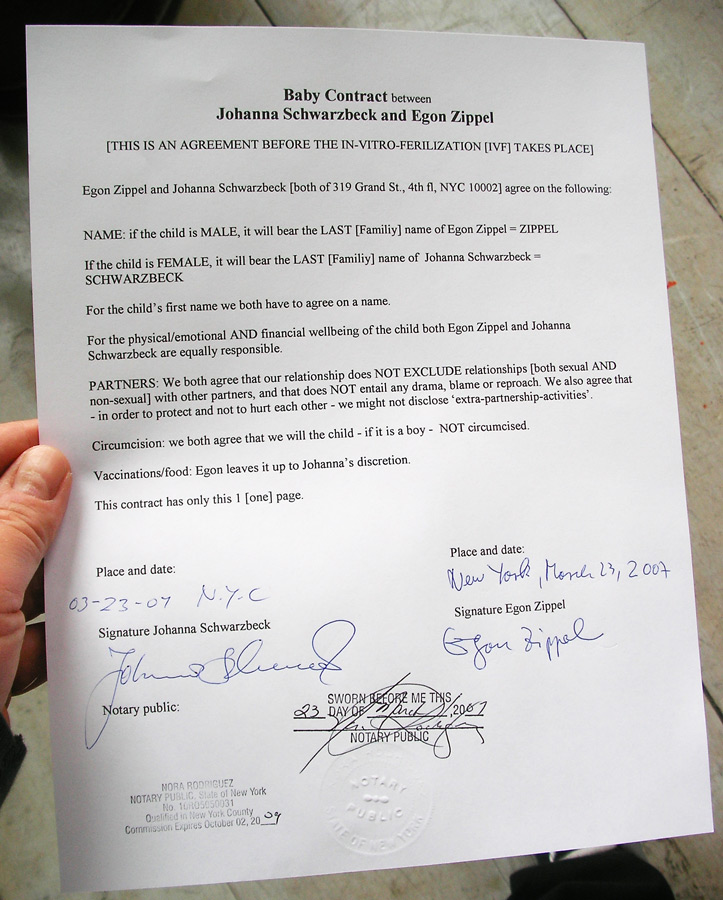 Baby Contract between
Johanna Schwarzbeck and Egon Zippel
[THIS IS AN AGREEMENT BEFORE THE IN-VITRO-FERILIZATION [IVF] TAKES PLACE]
Egon Zippel and Johanna Schwarzbeck [both of 319 Grand St., 4th fl, NYC 10002] agree on the following:
NAME: if the child is MALE, it will bear the LAST [Familiy] name of Egon Zippel = ZIPPEL
If the child is FEMALE, it will bear the LAST [Familiy] name of Johanna Schwarzbeck =
SCHWARZBECK
For the child's first name we both have to agree on a name.
For the physical/emotional AND financial wellbeing of the child both Egon Zippel and Johanna
Schwarzbeck are equally responsible.
PARTNERS: We both agree that our relationship does NOT EXCLUDE relationships [both sexual AND
non-sexual] with other partners, and that does NOT entail any drama, blame or reproach. We also agree that
- in order to protect and not to hurt each other - we might not disclose 'extra-partnership-activities'.
Circumcision: we both agree that we will the child - if it is a boy - NOT circumcised.
Vaccinations/food: Egon leaves it up to Johanna's discretion.
This contract has only this 1 [one] page.
Place and date:
03-23-07 N.Y.C
Signature Johanna Schwarzbeck
Johanna Schwarzbeck
Notary public:
Place and date:
New York, March 23, 2007
Signature Egon Zippel
Egon Zippel
SWORN BEFORE ME THIS
23 DAY OF March, 2007
NOTARY PUBLIC
NORA RODRIGUEZ
NOTARY PUBLIC, State of New York
No. 
Qualified in New York County
Commission Expires October 02, 2009
NOTARY
PUBLIC
STATE OF NEW YORK